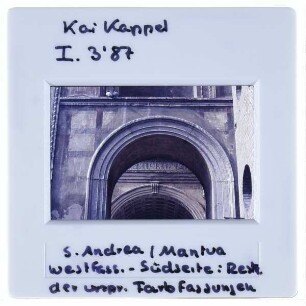 Kai Kappel
I. 3'87
S. Andrea / Mantua
Westfass. - Südseite: Rest.
der urspr. Farbfassungen